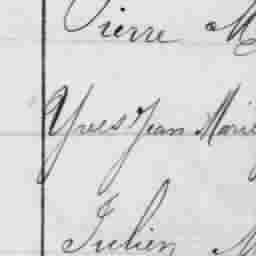 Pierre M
Yves Jean Marie
Julien M